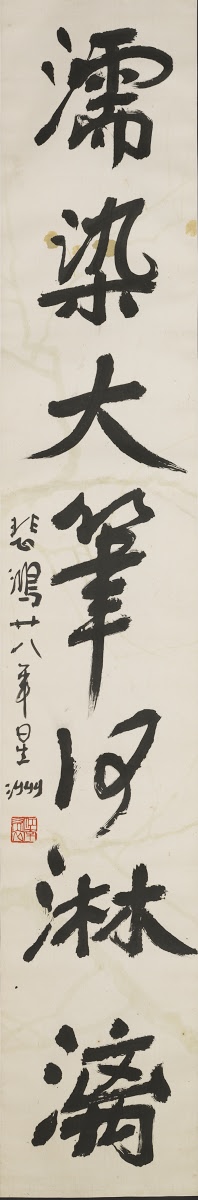 濡染大筆何淋漓
悲鴻廿八年星洲